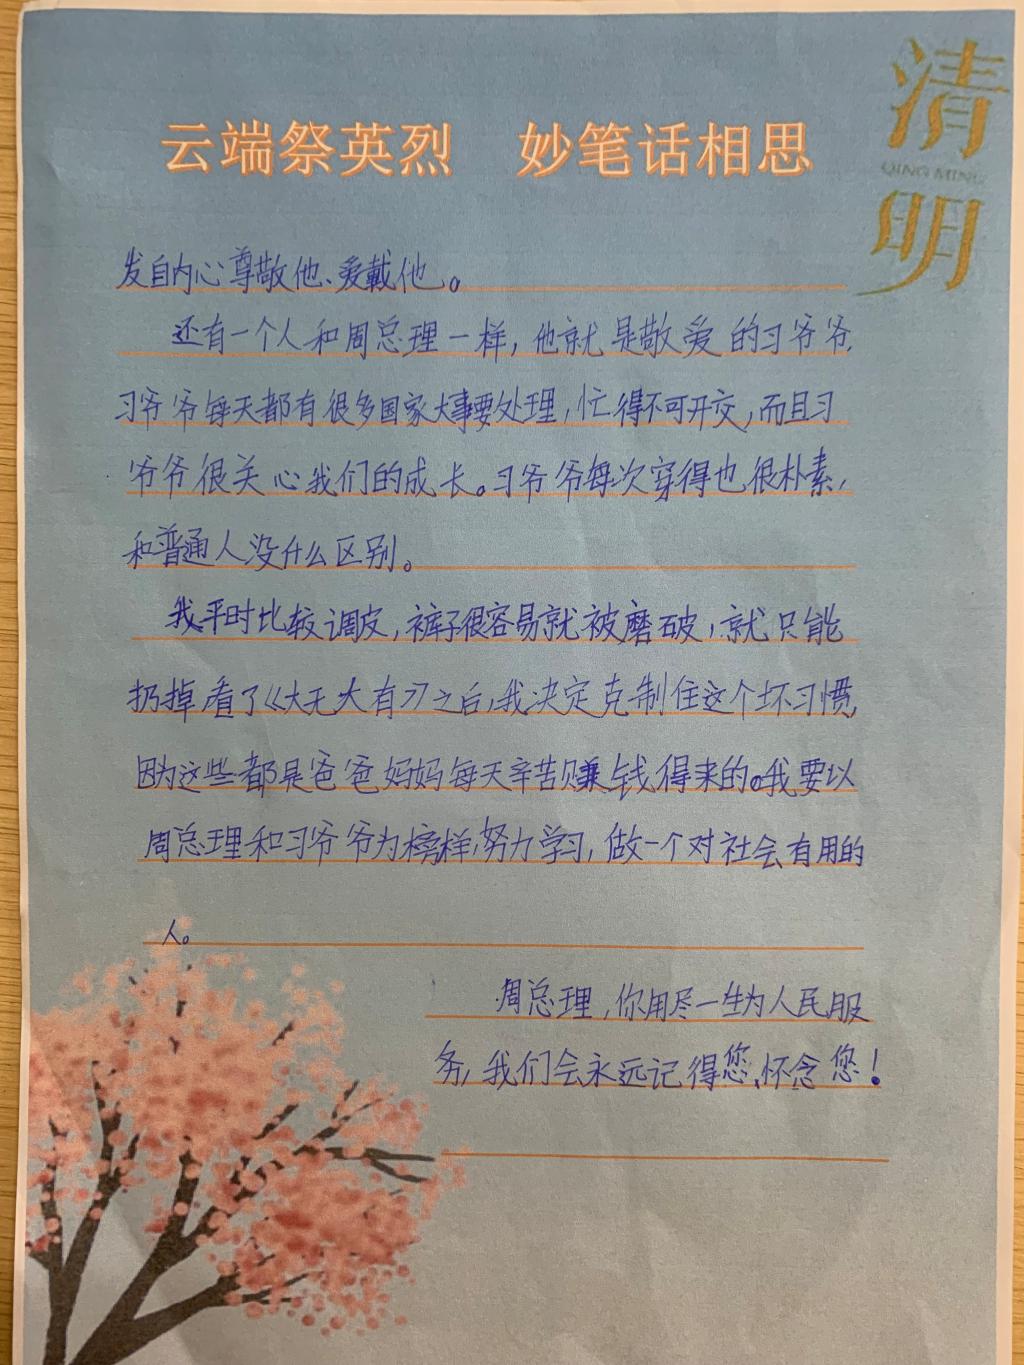 清明
QING MING
云端祭英烈 妙笔话相思
发自内心尊敬他、爱戴他。
还有一个人和周总理一样，他就是敬爱的习爷爷，
习爷爷每天都有很多国家大事要处理，忙得不可开交，而且习
爷爷很关心我们的成长。习爷爷每次穿得也很朴素，
和普通人没什么区别。
我平时比较调皮，裤子很容易就被磨破，就只能
扔掉，看了《大无大有》之后，我决定克制住这个坏习惯，
因为这些都是爸爸妈妈每天辛苦赚钱得来的。我要以
周总理和习爷爷为榜样，努力学习，做一个对社会有用的
人。
周总理，你用尽一生为人民服
务，我们会永远记得您、怀念您！